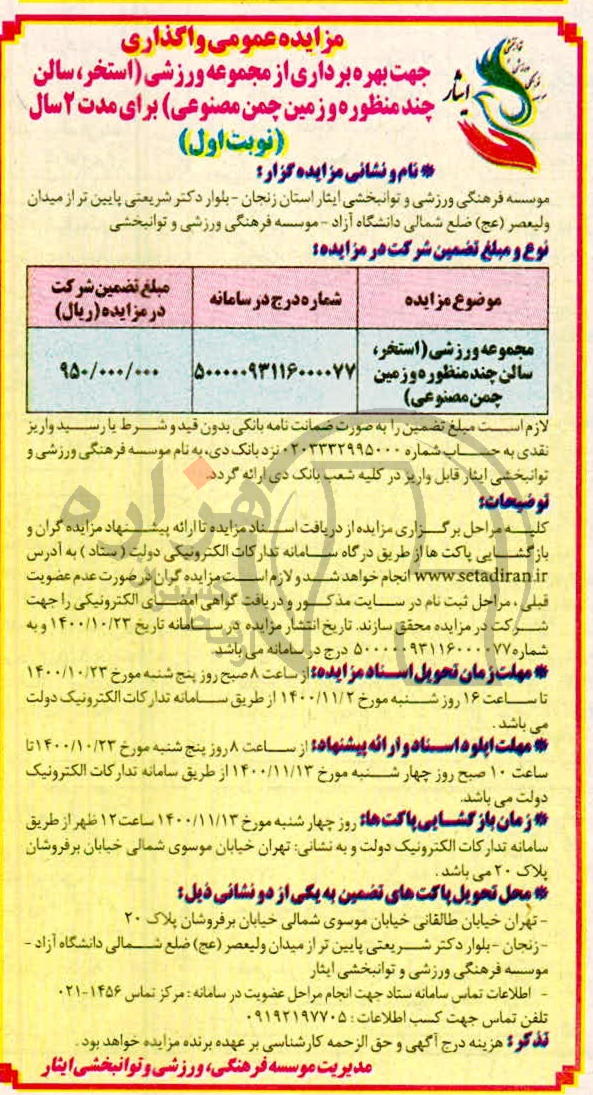 مزایده عمومی واگذاری
جهت بهره برداری از مجموعه ورزشی (استخر، سالن
چند منظوره و زمین چمن مصنوعی) برای مدت ۲ سال
(نوبت اول)
ایثار
* نام و نشانی مزایده گزار:
موسسه فرهنگی ورزشی و توانبخشی ایثار استان زنجان - بلوار دکتر شریعتی پایین تر از میدان
ولیعصر (عج) ضلع شمالی دانشگاه آزاد - موسسه فرهنگی ورزشی و توانبخشی
نوع و مبلغ تضمین شرکت در مزایده:
موضوع مزایده	شماره درج در سامانه	مبلغ تضمین شرکت در مزایده (ریال)
مجموعه ورزشی (استخر، سالن چند منظوره و زمین چمن مصنوعی)	۵۰۰۰۰۰۹۳۱۱۶۰۰۰۰۷۷	۹۵۰/۰۰۰/۰۰۰
لازم است مبلغ تضمین را به صورت ضمانت نامه بانکی بدون قید و شرط یا رسید واریز
نقدی به حساب شماره ۰۲۰۳۳۳۲۹۹۵۰۰۰ نزد بانک دی، به نام موسسه فرهنگی ورزشی و
توانبخشی ایثار قابل واریز در کلیه شعب بانک دی ارائه گردد.
توضیحات:
کلیه مراحل برگزاری مزایده از دریافت اسناد مزایده تا ارائه پیشنهاد مزایده گران و
بازگشایی پاکت ها از طریق درگاه سامانه تدارکات الکترونیکی دولت (ستاد) به آدرس
www.setadiran.ir انجام خواهد شد و لازم است مزایده گران در صورت عدم عضویت
قبلی، مراحل ثبت نام در سایت مذکور و دریافت گواهی امضای الکترونیکی را جهت
شرکت در مزایده محقق سازند. تاریخ انتشار مزایده در سامانه تاریخ ۱۴۰۰/۱۰/۲۳ و به
شماره ۵۰۰۰۰۰۹۳۱۱۶۰۰۰۰۷۷ درج در سامانه می باشد.
* مهلت زمان تحویل اسناد مزایده: از ساعت ۸ صبح روز پنج شنبه مورخ ۱۴۰۰/۱۰/۲۳
تا ساعت ۱۶ روز شنبه مورخ ۱۴۰۰/۱۱/۲ از طریق سامانه تدارکات الکترونیک دولت
می باشد.
* مهلت اپلود اسناد و ارائه پیشنهاد: از ساعت ۸ روز پنج شنبه مورخ ۱۴۰۰/۱۰/۲۳ تا
ساعت ۱۰ صبح روز چهار شنبه مورخ ۱۴۰۰/۱۱/۱۳ از طریق سامانه تدارکات الکترونیک
دولت می باشد.
* زمان بازگشایی پاکت ها: روز چهار شنبه مورخ ۱۴۰۰/۱۱/۱۳ ساعت ۱۲ ظهر از طریق
سامانه تدارکات الکترونیک دولت و به نشانی: تهران خیابان موسوی شمالی خیابان برفروشان
پلاک ۲۰ می باشد.
* محل تحویل پاکت های تضمین به یکی از دو نشانی ذیل:
- تهران خیابان طالقانی خیابان موسوی شمالی خیابان برفروشان پلاک ۲۰
- زنجان - بلوار دکتر شریعتی پایین تر از میدان ولیعصر (عج) ضلع شمالی دانشگاه آزاد -
موسسه فرهنگی ورزشی و توانبخشی ایثار
- اطلاعات تماس سامانه ستاد جهت انجام مراحل عضویت در سامانه: مرکز تماس ۱۴۵۶-۰۲۱
تلفن تماس جهت کسب اطلاعات: ۰۹۱۹۲۱۹۷۷۰۵
تذکر: هزینه درج آگهی و حق الزحمه کارشناسی بر عهده برنده مزایده خواهد بود.
مدیریت موسسه فرهنگی، ورزشی و توانبخشی ایثار